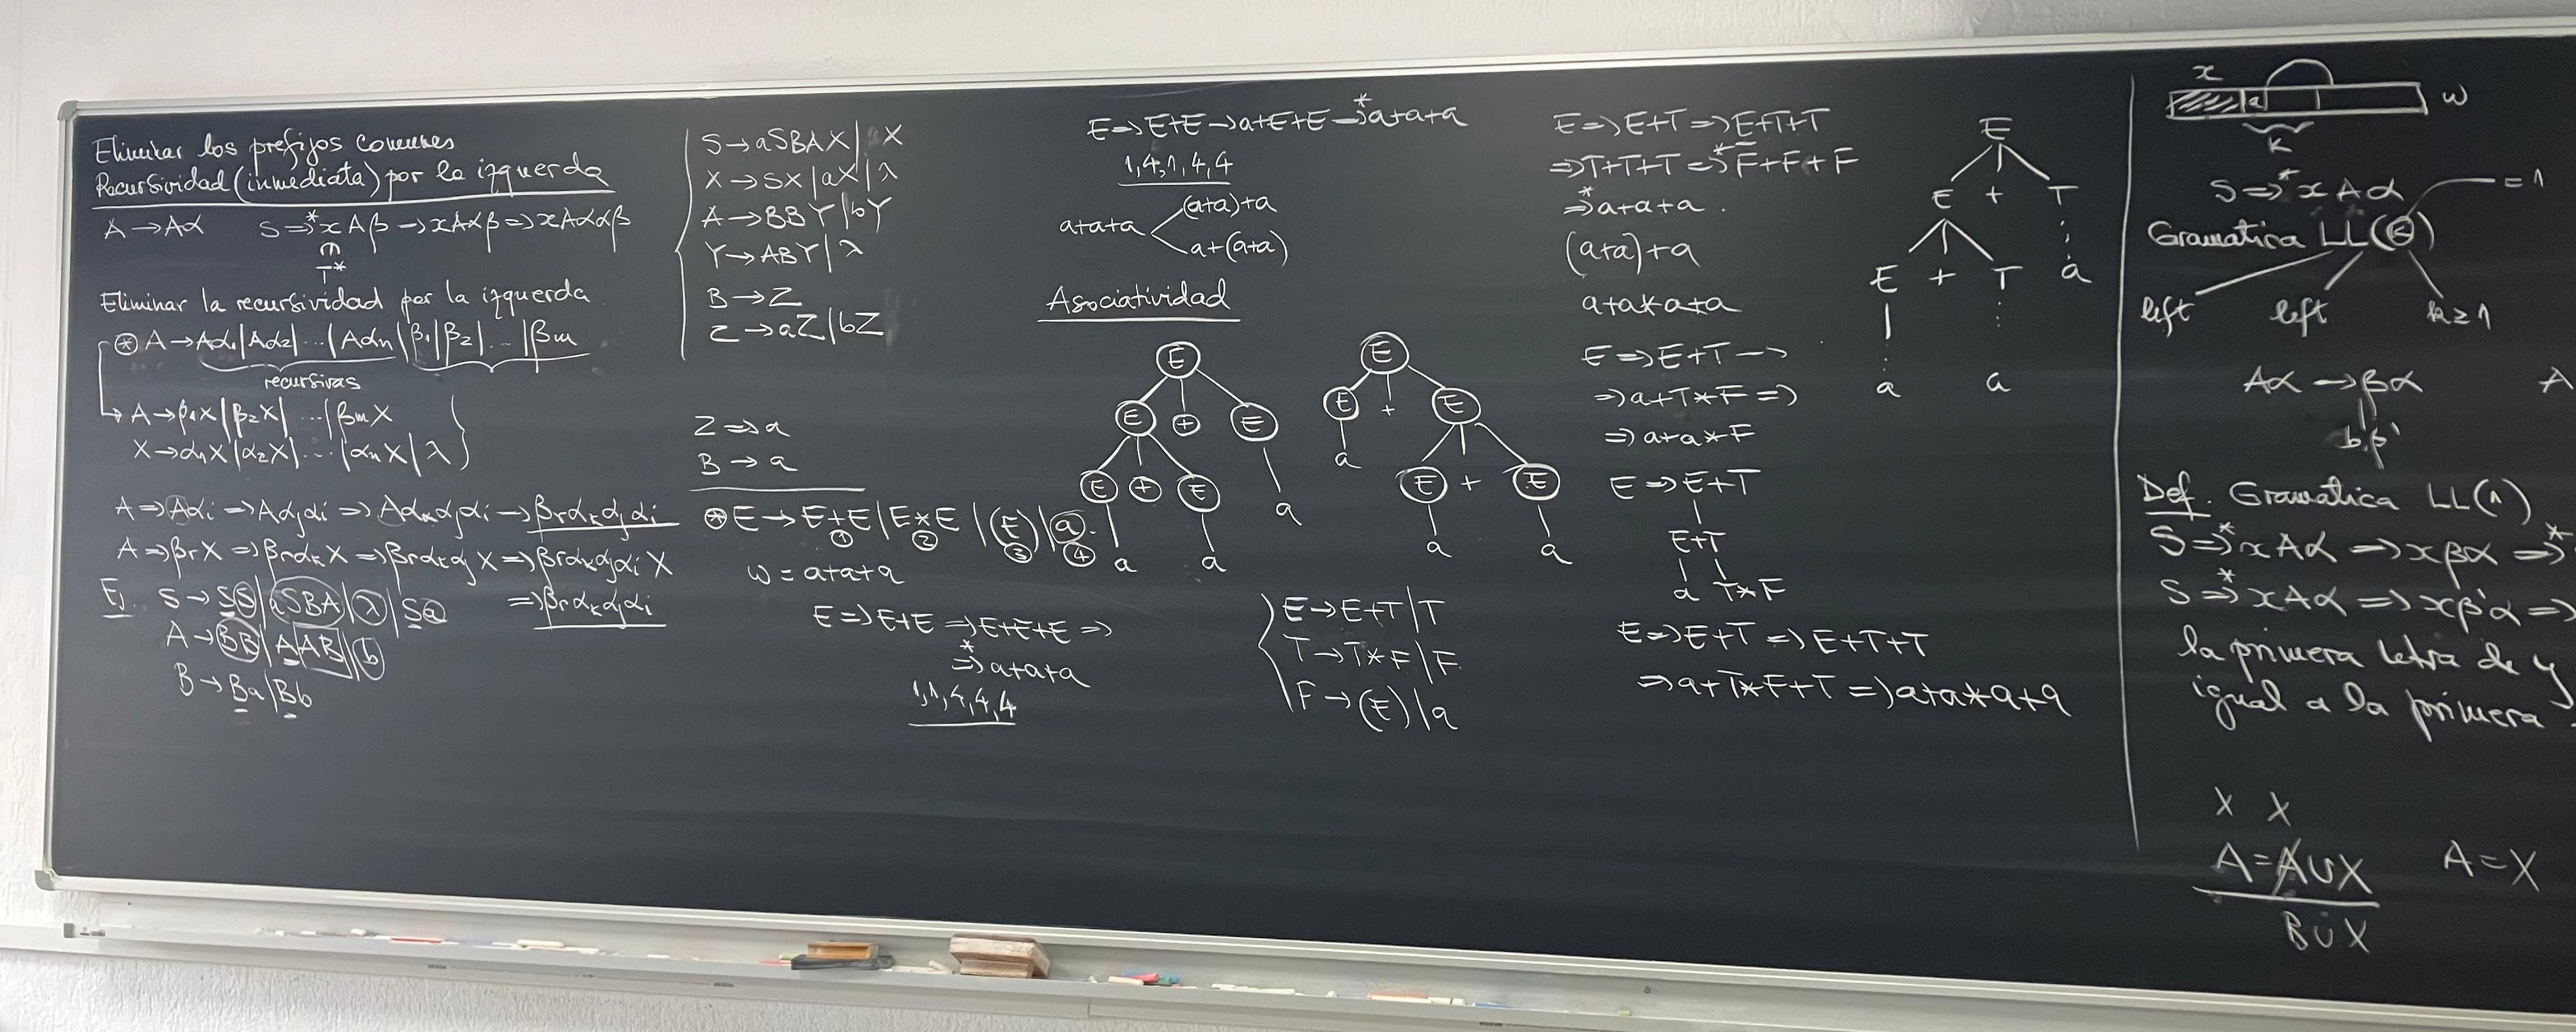 Eliminar los prefijos comunes
Recursividad (inmediata) por la izquerda
A → Aα   S ⇒* xAβ → xAαβ ⇒ xAααβ
T*
Eliminar la recursividad por la izquerda
⊛ A → Aα1|Aα2|...|Aαn|β1|β2|...|βm
recursivas
A → β1X|β2X|...|βmX
X → α1X|α2X|...|αnX|λ
A ⇒ Aαi ⇒ Aαjαi ⇒ Aαkαjαi → βrαkαjαi
A ⇒ βrX ⇒ βrαkX ⇒ βrαkαjX ⇒ βrαkαjαiX
⇒ βrαkαjαi
Ej. S → SS|aSBA|λ|Sa
A → BB|AAB|b
B → Ba|Bb
S → aSBAX|X
X → SX|aX|λ
A → BBY|bY
Y → ABY|λ
B → Z
Z → aZ|bZ
Z ⇒ a
B → a
⊛ E → E+E|E*E|(E)|a
1 2 3 4
w = a+a+a
E ⇒ E+E ⇒ E+E+E ⇒
⇒* a+a+a
1,1,4,4,4
E ⇒ E+E → a+E+E ⇒* a+a+a
1,4,1,4,4
(a+a)+a
a+a+a
a+(a+a)
Asociatividad
E
E + E
E + E a
a a
E
E + E
a E + E
a a
E → E+T|T
T → T*F|F
F → (E)|a
E ⇒ E+T ⇒ E+T+T
⇒ T+T+T ⇒* F+F+F
⇒* a+a+a.
(a+a)+a
a+a*a+a
E ⇒ E+T →
⇒ a+T*F ⇒
⇒ a+a*F
E ⇒ E+T
E+T
a T*F
E ⇒ E+T ⇒ E+T+T
⇒ a+T*F+T ⇒ a+a*a+a
E
E + T
E + T a
a a
x
a w
K
S ⇒* xAα
= 1
Gramatica LL(K)
left left k≥1
Aα → βα A
b β'
Def. Gramatica LL(1)
S ⇒* xAα → xβα ⇒*
S ⇒* xAα ⇒ xβ'α ⇒
la primera letra de y
igual a la primera
X X
A = A∪X A = X
B∪X